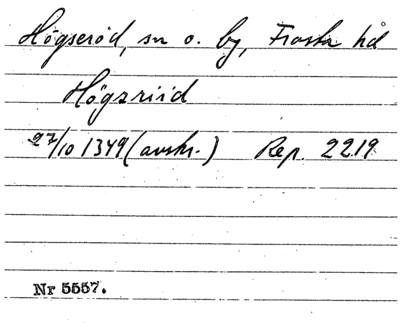 Högseröd, sn o. by, Frosta hd
Högzriid
27/10 1349 (avskr.) Rep. 2219
Nr 5557.